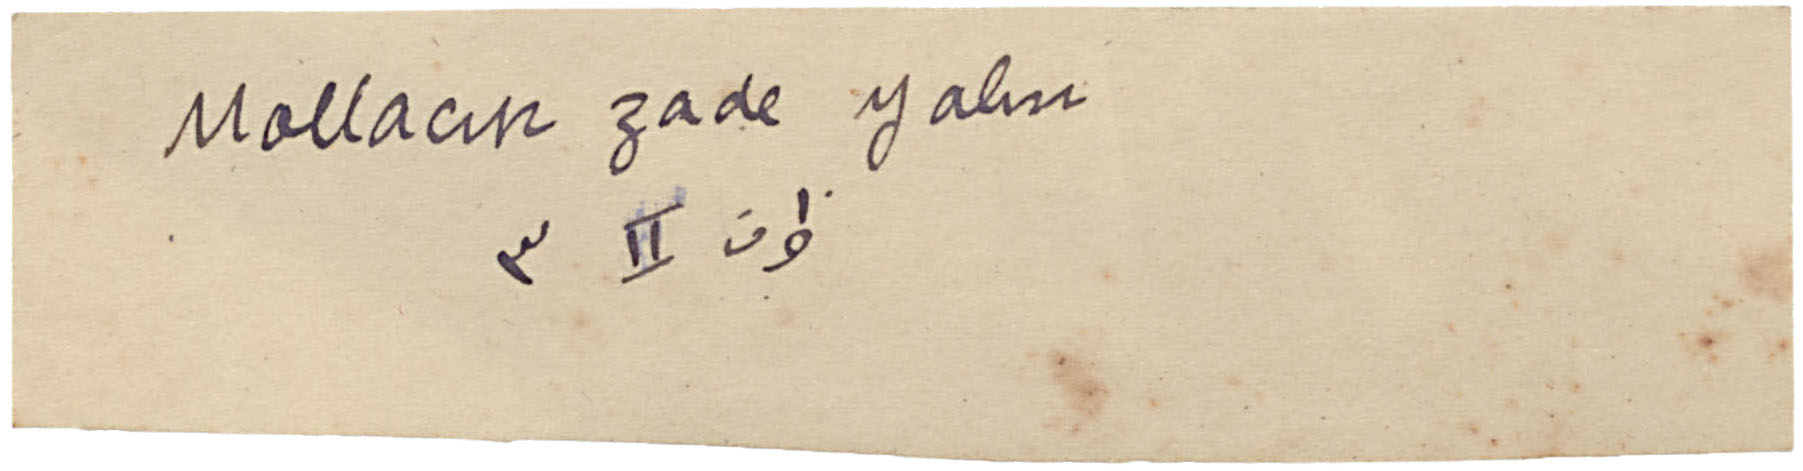 Mollacık zade yalısı
II ٣